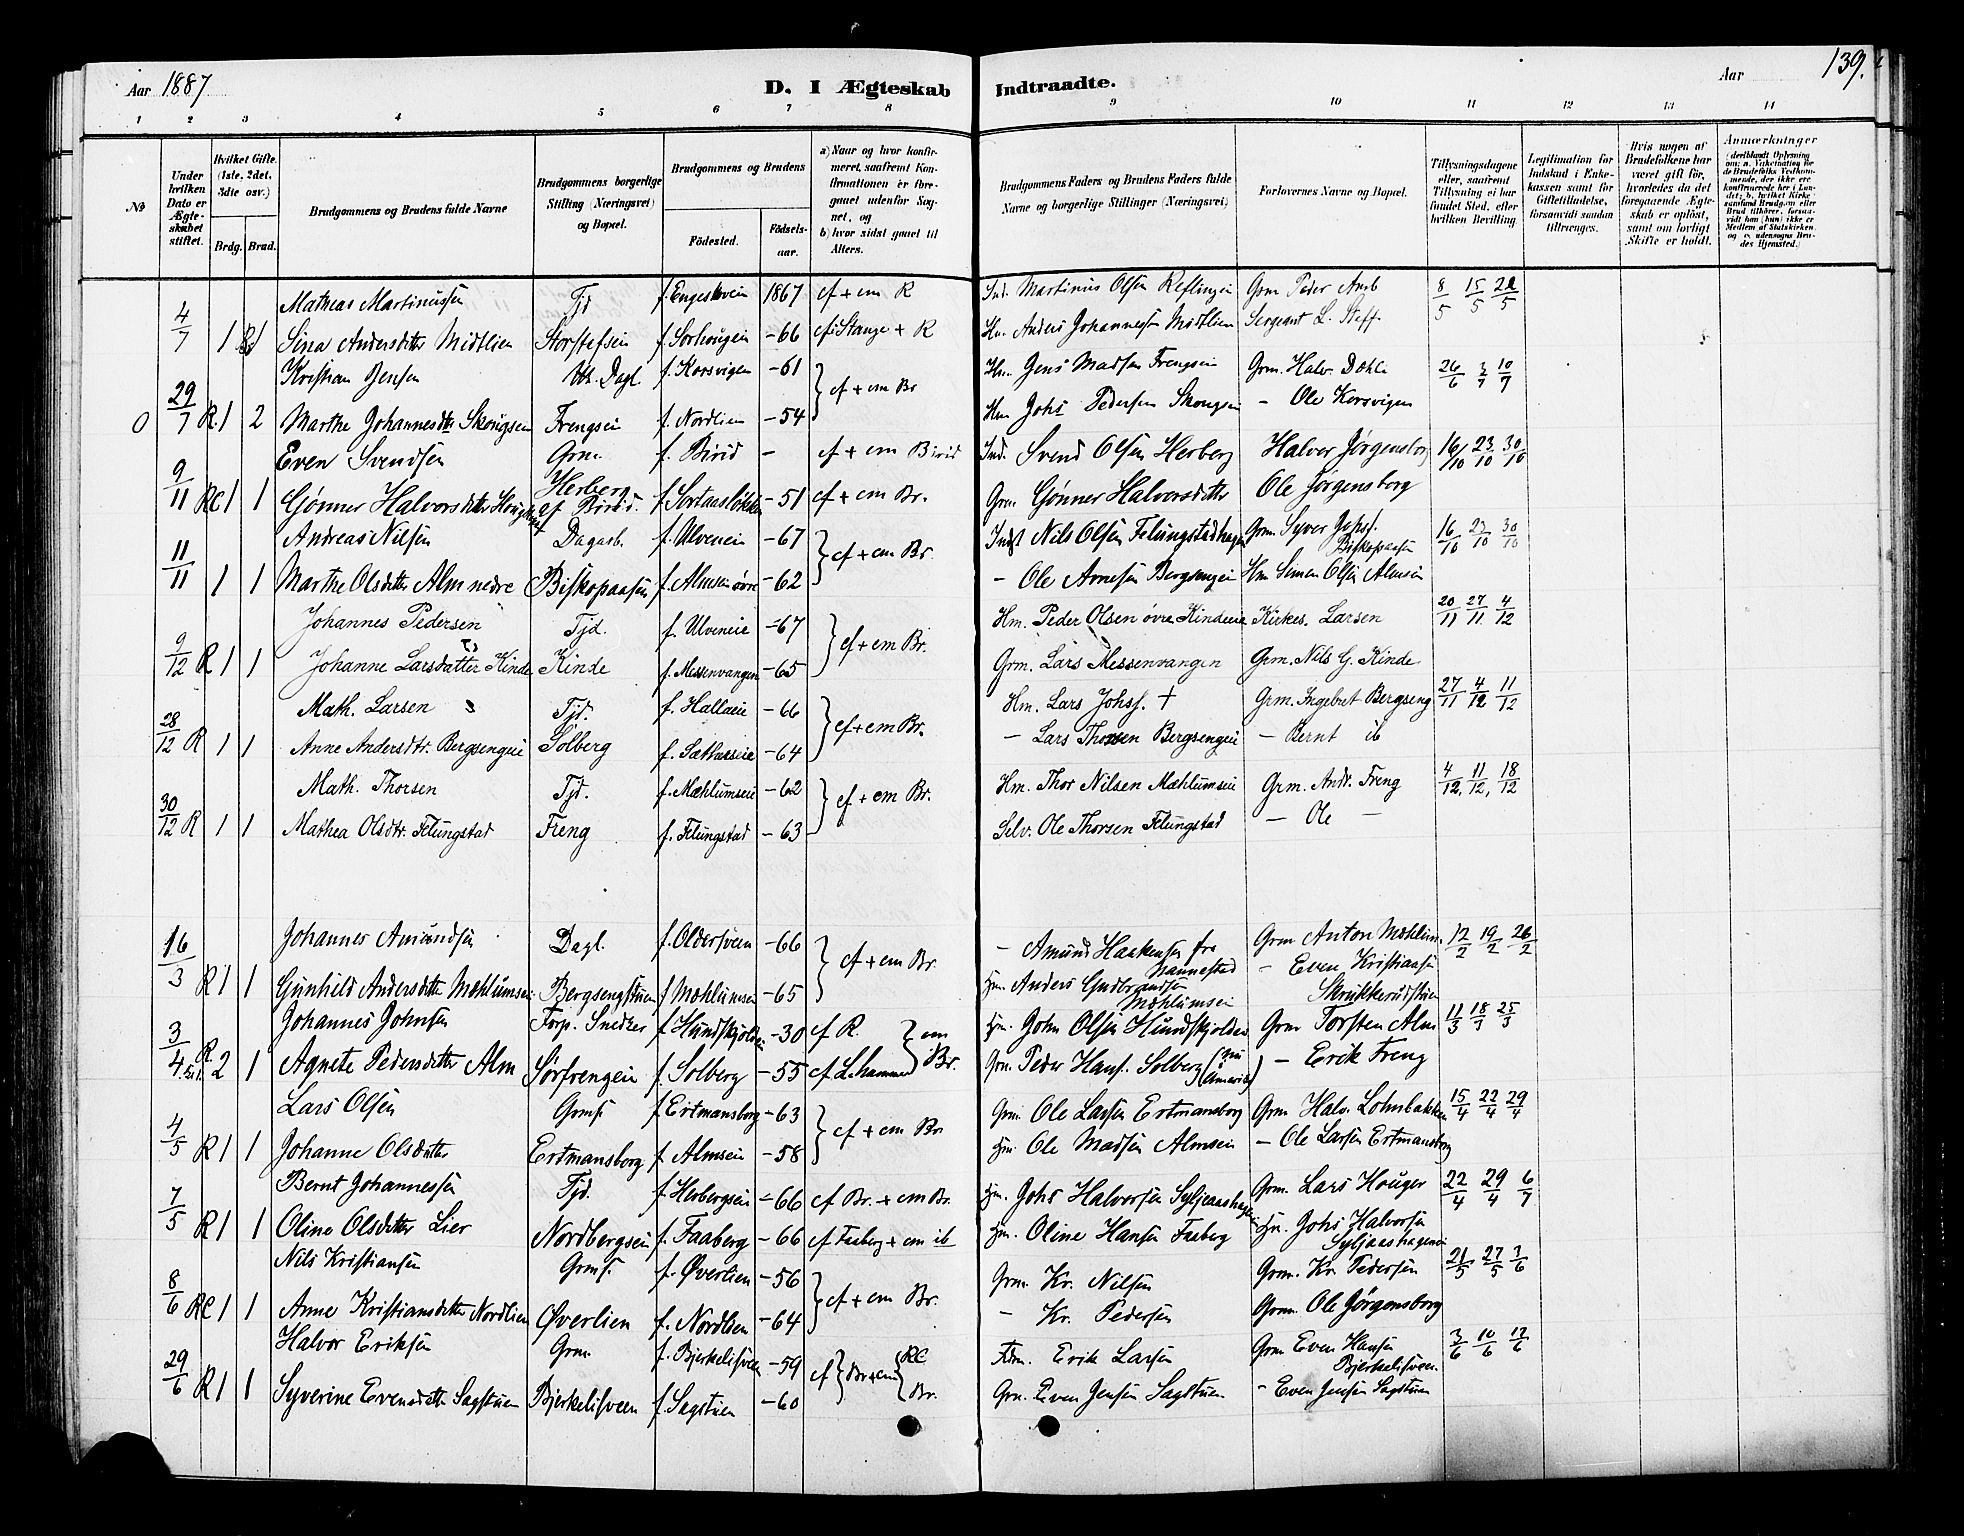 Aar 1887
D. I Ægteskab Indtraadte.
Aar
139.
1 2 3 4 5 6 7 8 9 10 11 12 13 14
№
Under hvilken Dato er Ægteskabet stiftet.
Hvilket Gifte. (1ste, 2det, 3die osv.)
Brdg. Brud.
Brudgommens og Brudens fulde Navne
Brudgommens borgerlige Stilling (Næringsvei) og Bopæl.
Brudgommens og Brudens
Fødested.
Fødselsaar.
a) Naar og hvor konfirmeret, saafremt Konfirmationen er foregaaet udenfor Sognet, og
b) hvor sidst gaaet til Alters.
Brudgommens Faders og Brudens Faders fulde Navne og borgerlige Stillinger (Næringsvei)
Forlovernes Navne og Bopæl.
Tillysningsdagene eller, saafremt Tillysning ei har fundet Sted, efter hvilken Bevilling
Legitimation for Indskud i Enkekassen samt for Giftetilladelse, forsaavidt saadan tiltrænges.
Hvis nogen af Brudefolkene har været gift før, hvorledes da det foregaaende Ægteskab er opløst, samt om lovligt Skifte er holdt.
Anmærkninger
4/7 Mathias Martinussen Tjd f. Engeshveen 1867 cf + em R Ind. Martinus Olsen Reflingen Grm Peder Amb 8/5 15/5 22/5
1 1 Sina Andersdatter Midtlien Storstefsen f. Sorhougen - 66 cf i Stange + R Hm. Anders Johannesen Midtlien Sergeant L. Steff.
29/7 Kristian Jensen Dagl. f. Korsvigen - 61 cf + em Br Hm. Jens Madsen Frengseie Grm. Halv. Dæhli 26/6 3/7 10/7
0 R. 1 2 Marthe Johannesdtr Skougsen Frengseie f. Nordlien - 54 Hm Johs Pedersen Skougsen - Ole Korsvigen
9/11 Even Svendsen Grm. f. Birid - cf + em Birid Ind. Svend Olsen Herberg Halvor Jørgensborg 16/10 23/10 30/10
RC 1 1 Gønner Halvorsdatter Herberg af Birid. - 51 cf + em Br. Grm. Gønner Halvorsdatter Ole Jørgensborg
11/11 Andreas Nilsen Dagarb. f. Ulveneie - 67 cf + em Br. Indst Nils Olsen Felungstadhagen Grm Syver Johs. Biskopaasen 16/10 23/10 30/10
1 1 Marthe Olsdatter Alm nedre Biskopaasen f. Almsen øvre - 62 - Ole Arnesen Bergsengen Hm Simen Olsen Almsen
9/12 Johannes Pedersen Tjd. f. Ulveneie - 67 cf + em Br. Hm. Peder Olsen øvre Kindeeie Kirkes. Larsen 20/11 27/11 4/12
R 1 1 Johanne Larsdatter Kinde Kinde f. Messenvangen - 65 Grm. Lars Messenvangen Grm. Nils G. Kinde
28/12 Math. Larsen Tjd. f. Hallaeie - 66 cf + em Br. Hm. Lars Johs. † Grm. Ingebret Bergseng 27/11 4/12 11/12
R 1 1 Anne Andersdtr. Bergsengeie Solberg - 64 - Lars Thorsen Bergsengeie - Bernt ib
30/12 Math. Thorsen Tjd. f. Mæhlumseie - 62 cf + em Br. Hm. Thor Nilsen Mæhlumseie Grm. Andr. Freng 4/12, 11/12, 18/12
R 1 1 Mathea Olsdtr. Felungstad Freng f. Felungstad - 63 Selv. Ole Thorsen Felungstad - Ole -
16/3 Johannes Amundsen Dagl. f. Oldersveen - 66 cf + em Br. - Amund Haakensen fra Nannestad Grm Anton Mæhlum 12/2 19/2 26/2
R 1 1 Gunhild Andersdatter Mæhlumsen Bergsengstuen f Mæhlumsen - 65 Hm. Anders Gudbrandsen Mæhlumsen - Even Kristiansen Skrukkerudstuen
3/4 Johannes Johnsen Forp. Snedker f. Hundskjolden - 30 cf R. em Br. Hm. John Olsen Hundskjolden Grm Torsten Alm 11/3 18/3 25/3
R. 2 1 Agnete Pedersdatter Alm Sørfrengeie f Solberg - 55 cf L.hammer Grm. Peder Hans. Solberg (nu i Amerika) - Erik Freng
4/5 Lars Olsen Grms f Ertmansborg - 63 cf + em Br Grm. Ole Larsen Ertmansborg Grm Halv. Lohnbakken 15/4 22/4 29/4
R 1 1 Johanne Olsdatter Ertmansborg f. Almsen - 58 Hm. Ole Madsen Almsen - Ole Larsen Ertmansborg
7/5 Bernt Johannessen Tjd. f Herbergsen - 66 cf Br. + em Br. Hm. Johs Halvorsen Syljeaashagen Grm. Lars Houger 22/4 29/4 6/7
R 1 1 Oline Olsdatter Lier Nordbergsen f. Faaberg - 66 cf Faaberg + em ib Hm. Oline Hansen Faaberg Hm. Johs Halvorsen Syljaashagen
8/6 Nils Kristiansen Grms. f. Øverlien - 56 cf + em Br. Grm. Kr. Nilsen Grm. Kr. Pedersen 21/5 27/5 3/6
RC 1 1 Anne Kristiansdatter Nordlien Øverlien f. Nordlien - 64 - Kr. Pedersen Grm. Ole Jørgensborg
29/6 Halvor Eriksen Grm f. Bjerkelisveen - 59 cf Br + em RC Br. Fdm. Erik Larsen Grm Even Hansen Bjerkelisveen. 3/6 10/6 17/6
R 1 1 Syverine Evensdatter Sagstuen Bjerkelisveen f. Sagstuen - 60 Grm. Even Jensen Sagstuen - Even Jensen Sagstuen